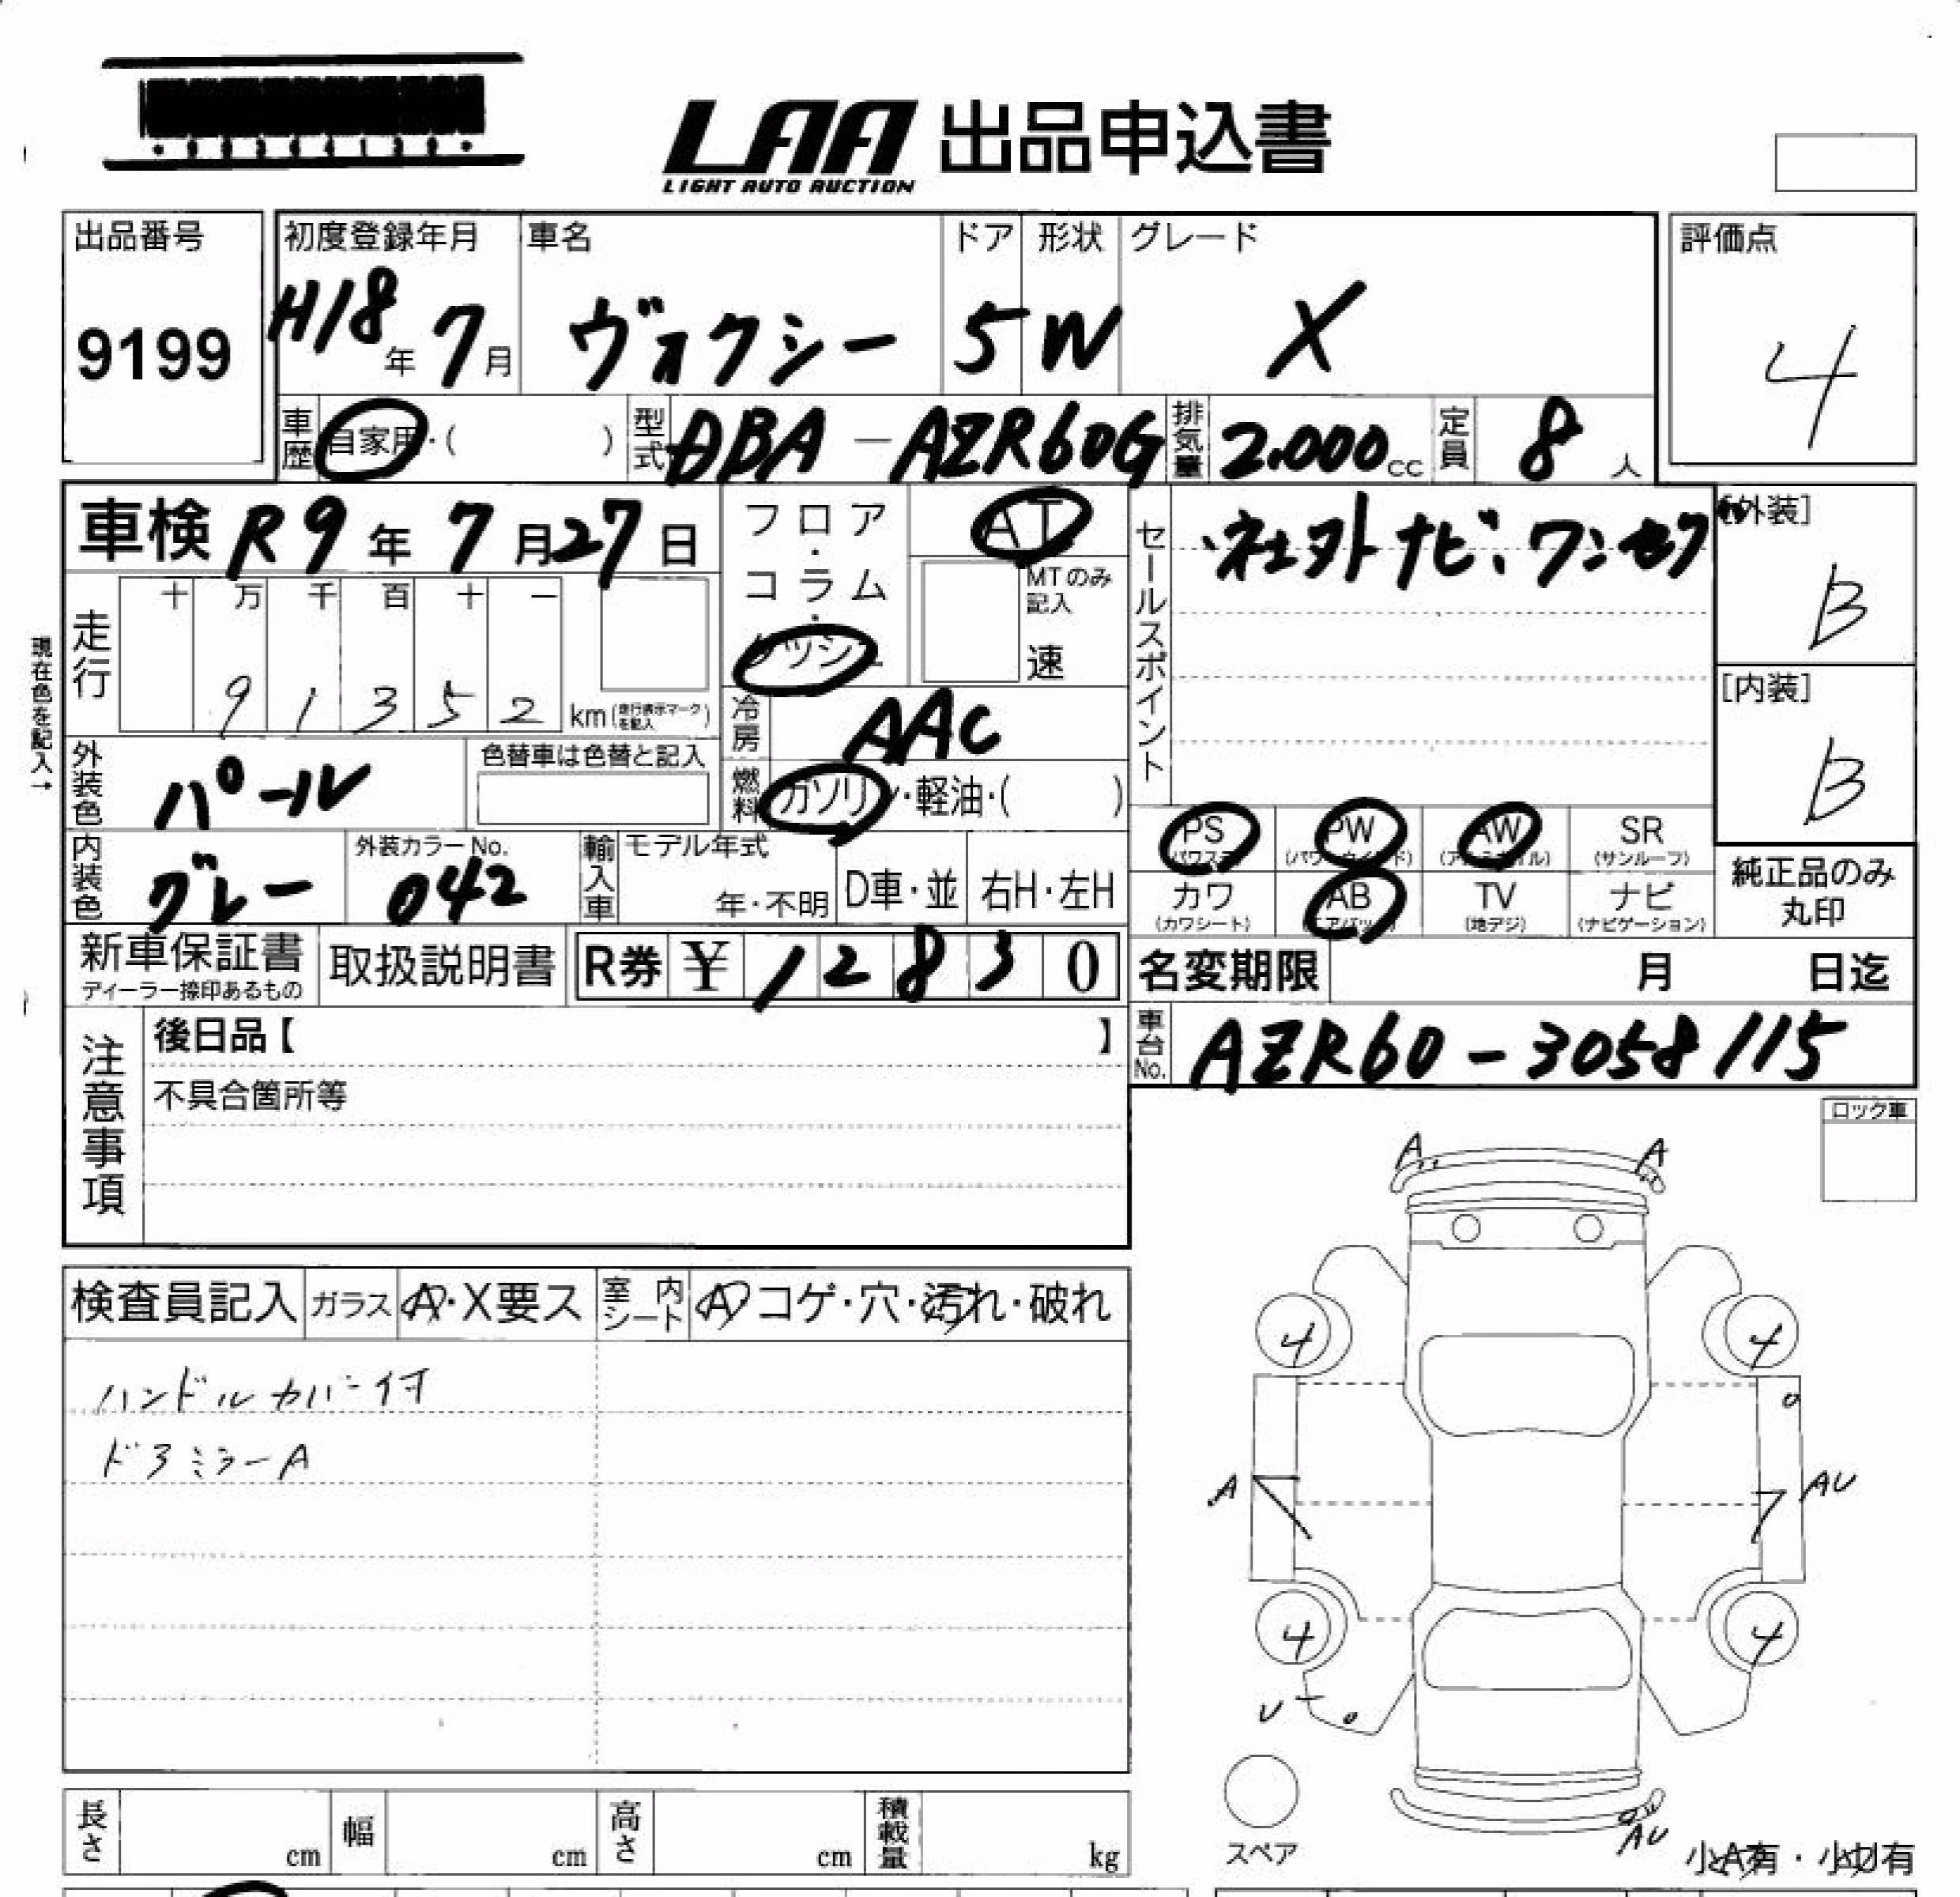 LAA 出品申込書
LIGHT AUTO AUCTION
出品番号
9199
初度登録年月
H18年 7月
車名
ヴォクシー
ドア
5
形状
W
グレード
X
評価点
4
車歴 自家用・( )
型式 DBA-AZR60G
排気量 2,000cc
定員 8人
車検 R9年 7月27日
フロア・コラム・ダッシュ
AT
MTのみ記入
速
セールスポイント
・社外ナビ・ワンセグ
[外装]
B
[内装]
B
現在色を記入→
走行
十 万 千 百 十 一
9 1 3 5 2
km(走行表示マークを記入)
冷房 AAC
外装色 パール
色替車は色替と記入
燃料 ガソリン・軽油・( )
内装色 グレー
外装カラーNo.
042
輸入車
モデル年式
年・不明
D車・並
右H・左H
PS (パワステ)
PW (パワーウインド)
AW (アルミホイル)
SR (サンルーフ)
カワ (カワシート)
AB (エアバック)
TV (地デジ)
ナビ (ナビゲーション)
純正品のみ丸印
新車保証書
ディーラー捺印あるもの
取扱説明書
R券 ¥ 1 2 8 3 0
名変期限 月 日迄
注意事項
後日品【 】
不具合箇所等
車台No. AZR60-3058115
ロック車
検査員記入
ガラス A・X要ス
室内シート A コゲ・穴・汚れ・破れ
ハンドルカバー付
ドアミラーA
A A
4 4
A AU
4 4
U
AU
スペア
小A有・小U有
長さ cm
幅 cm
高さ cm
積載量 kg